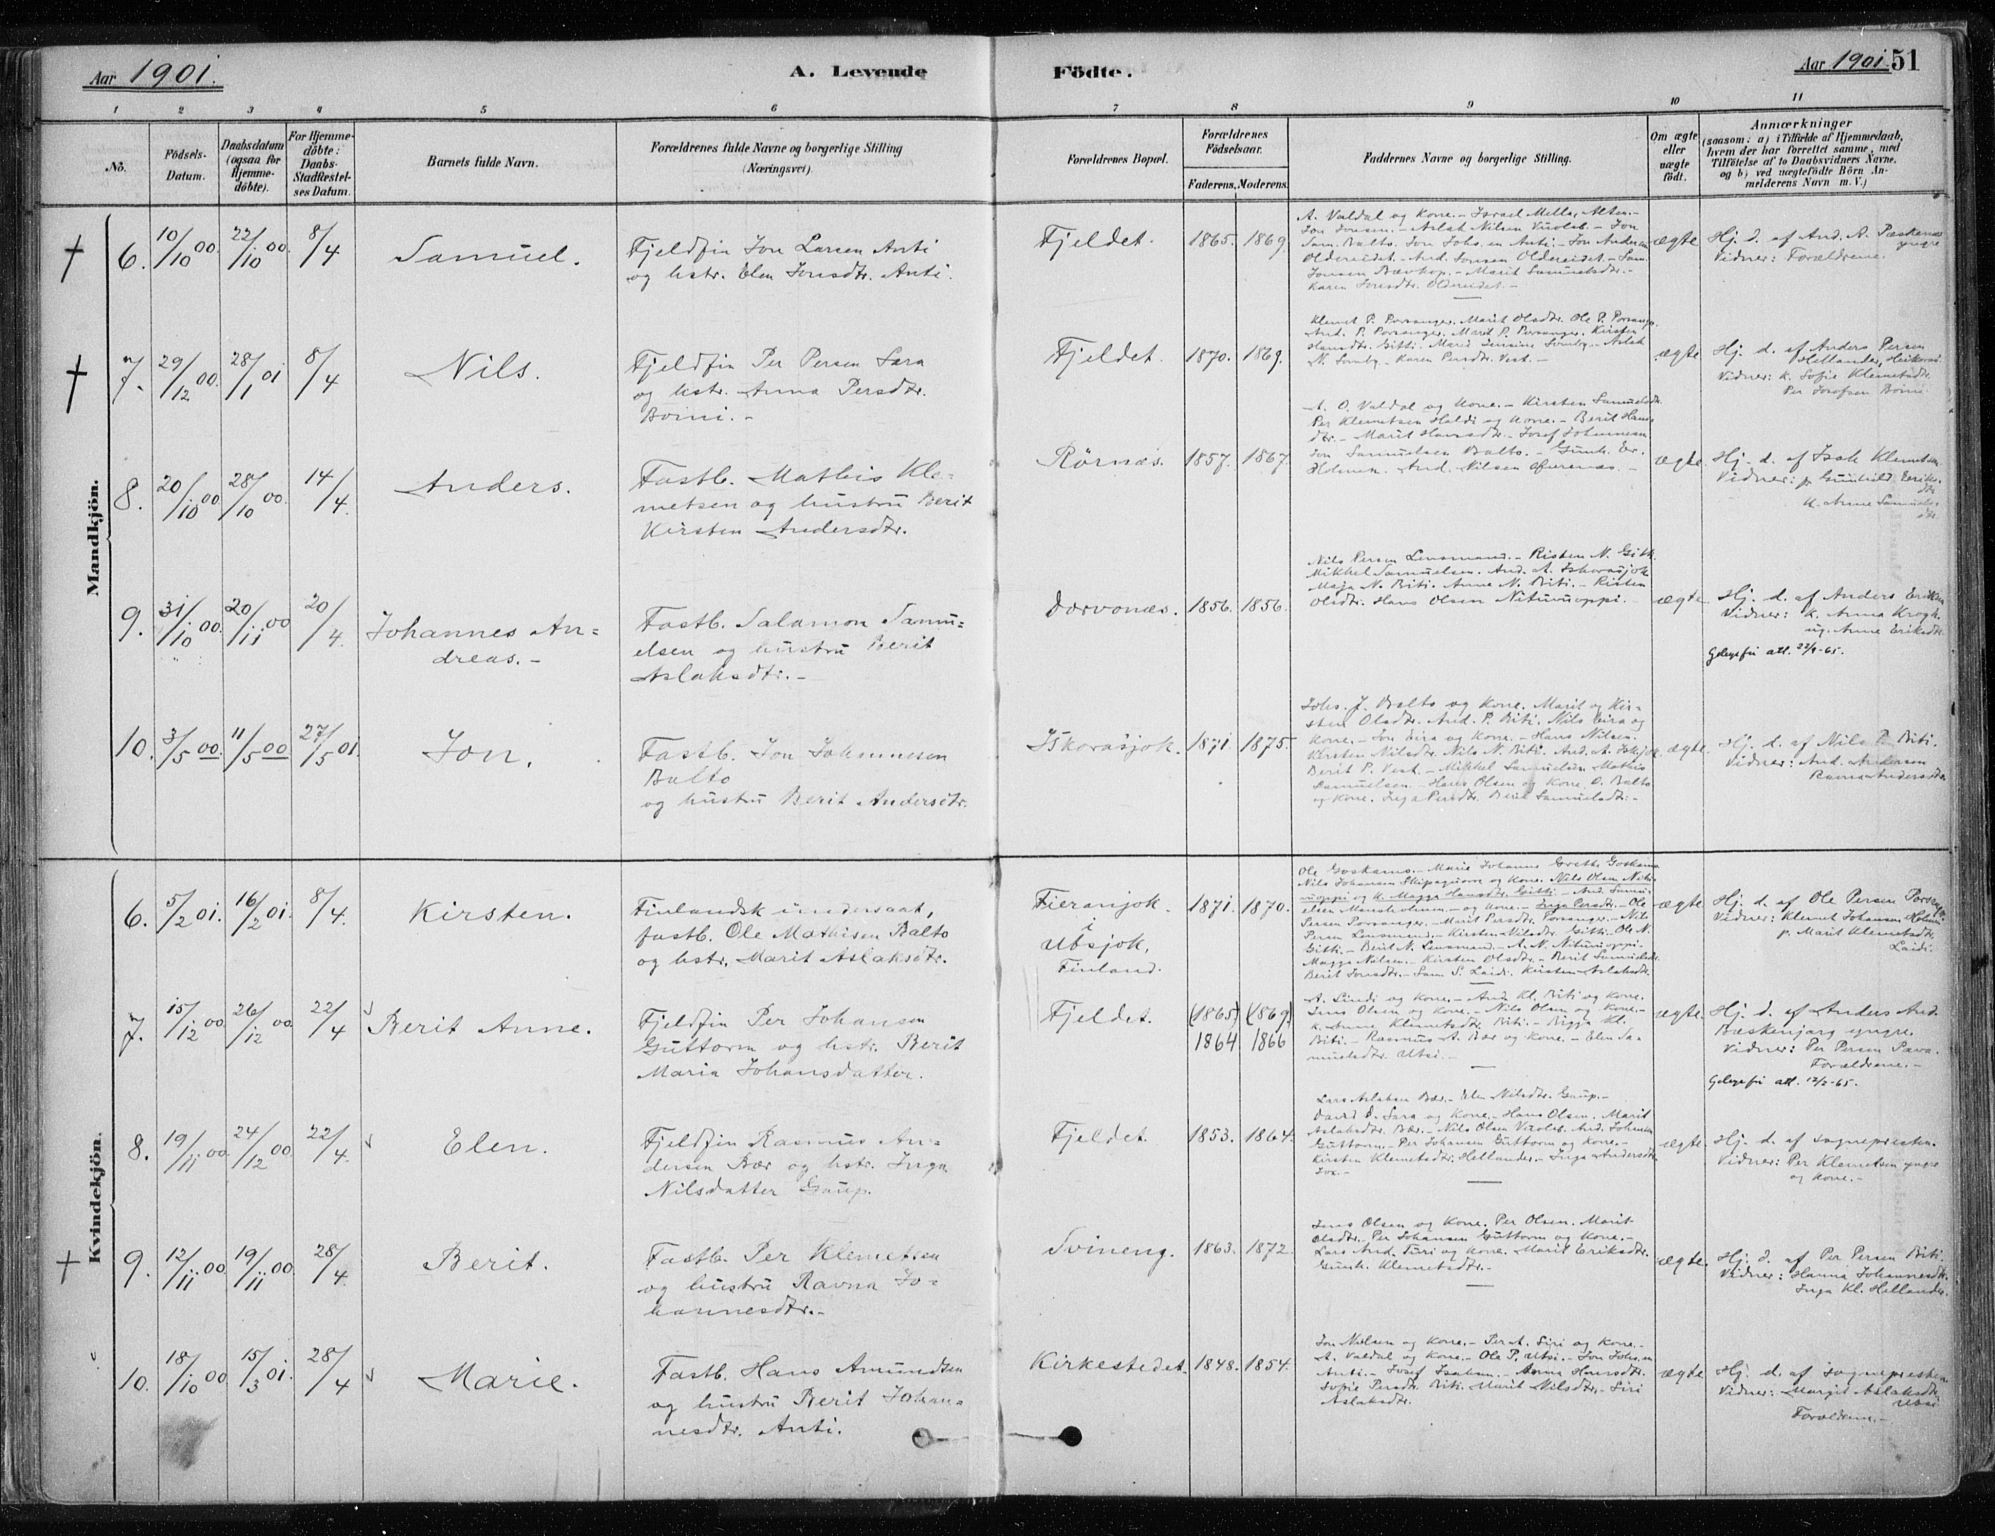 Aar 1901.
A. Levende
Födte.
Aar 1901. 51
1 2 3 4 5 6 7 8 9 10 11
No.
Födsels-
Datum.
Daabsdatum
(ogsaa for
Hjemme-
döbte).
For Hjemme-
döbte:
Daabs-
Stadfæstel-
ses Datum.
Barnets fulde Navn.
Forældrenes fulde Navne og borgerlige Stilling
(Næringsvei).
Forældrenes Bopæl.
Forældrenes
Födselsaar.
Faderens. Moderens.
Faddernes Navne og borgerlige Stilling.
Om ægte
eller
uægte
født.
Anmærkninger
(saasom: a) i Tilfælde af Hjemmedaab,
hvem der har forrettet samme, med
Tilföielse af to Daabsvidners Navne.
og b) ved uægtefödte Börn An-
melderens Navn m. V.)
Mandkjön.
† 6. 10/10 00. 22/10 00. 8/4 Samuel.
Fjeldfin Jon Larsen Anti
og hstr. Elen Jonsdtr. Anti.
Fjeldet. 1865. 1869.
A. Valdal og Kone. – Israel Mella, Alten. –
Jon Jonsen. – Aslak Nilsen Vuoleb. – Jon
Sam. Balto. Jon Johs.en Anti. – Jon Andersen
Oldereidet. – And. Jonsen Oldereidet. – Sam.
Jonsen Bævkop. – Marit Samuelsdtr. –
Karen Jonsdtr. Oldereidet. –
ægte
Hj. d. af And. A. Bæskenes
yngre
Vidner: Forældrene.
† 7. 29/12 00. 28/1 01 8/4 Nils.
Fjeldfin Per Persen Sara
og hstr. Anna Persdtr.
Boini. –
Fjeldet. 1870. 1869.
Klemet P. Porsanger. Marit Olsdtr. Ole P. Porsang.
And. P. Porsanger. Marit P. Porsanger. Kirsten
Hansdtr. Gitti. – Aslak
N. Somby. – Karen Persdtr. Vest. –
ægte
Hj. d. af Anders Persen
Hellander,
Vidner: k. Sofie Klemetsdtr.
Per Josefsen Boini
8. 20/10 00 28/10 00. 14/4. Anders.
Fastb. Mathis Kle-
metsen og hustru Berit
Kirsten Andersdtr.
Rörnæs. 1857. 1867.
A. O. Valdal og Kone. – Kirsten Samuelsdtr.
Per Klemetsen Haldi og Kone. – Berit Hans-
dtr. – Marit Hansdtr. – Josef Johannesen
Jon Samuelsen Balto. – Gunh. Er.
Holmen. And. Nilsen
ægte
Hj. d. af Isak Klemetsen.
Vidner: p. Gunhild Eriks-
dtr.
u. Anne Samuels-
dtr.
9. 31/10 00. 20/11 00 20/4. Johannes An=
dreas. –
Fastb. Salamon Samu=
elsen og hustru Berit
Aslaksdtr. –
Dorvonæs. 1856. 1856.
Nils Persen Lensmand. – Risten N. Gitti.
Mikkel Samuelsen. And. A. Iskorasjok
Maja N. Biti. Anne N. Biti. – Risten
Olsdtr. Hans Olsen Nituvuoppi.
ægte
Hj. d. af Anders Eriksen
Vidner: k. Anna Krogh.
ug. Anne Eriksdtr.
Gebyrfri att. 22/9-65.
10. 3/5 00. 11/5 00 27/5 01. Jon.
Fastb. Jon Johannesen
Balto
og hustru Berit Andersdtr.
Iskorasjok. 1871. 1875.
Johs. J. Balto og Kone. Marit og Kir-
sten Olsdtr. And. P. Biti. Nils Eira og
Kone. – Jon Eira og Kone. – Hans Nilsen.
Kirsten Nilsdtr. Nils N. Biti. And. A. Iskjok
Berit P. Vest. – Mikkel Samuelsen. Mathis
Samuelsen. – Hans Olsen og Kone. O. Balto
og Kone. Inga Persdtr. Berit Samuelsdtr. –
ægte
Hj. d. af Nils P. Biti.
Vidner: And. Andersen
Ravna Andersdtr.
Kvindekjön.
6. 5/2 01. 16/2 01. 8/4. Kirsten.
Finlandsk undersaat,
fastb. Ole Mathisen Balto
og hstr. Marit Aslaksdtr.
Fieranjok.
i
Utsjok,
Finland.
1871. 1870.
Ole Goskams. – Marie Johanne Grethe Goskams
Nils Johansen Skipagurra og Kone. Nils Olsen Nitu-
vuoppi og k. Magga Hansdtr. Gitti. – And. Samu-
elsen Mansholmen. – og Kone. – Inga Persdtr. – Ole
Persen Porsanger. – Marit Persdtr. Porsanger. – Nils
Persen Lensmand. – Kirsten Nilsdtr. Gitti. – Ole N.
Gitti. – Berit N. Lensmand. – A. N. Nituvuoppi.
Magga Nilsen. – Kirsten Olsdtr. – Berit Samuelsdtr.
Berit Jonsdtr. – Sam S. Laidi. Kirsten Aslaksdtr.
ægte
Hj. d. af Ole Persen Porsanger
Vidner: Klemet Johansen Holm.
p. Marit Klemetsdtr.
Laidi.
7. 15/12 00 26/12 00. 22/4 Berit Anne.
Fjeldfin Per Johansen
Guttorm og hstr. Berit
Maria Johansdatter.
Fjeldet. (1865) (1869)
1864 1866
A. Lindi og Kone. – And. Kl. Biti og Kone.
Jens Olsen og Kone. – Nils Olsen og Kone. –
k. Anne Klemetsdtr. Biti. – Bigga Kl.
Biti. – Rasmus A. Bær og Kone. – Elen Sa-
muelsdtr. Utsi. –
ægte.
Hj. d. af Anders And.
Bæskenjarg yngre.
Vidner: Per Persen Pava.
Forældrene. –
Gebyrfri att. 12/2-65.
8. 19/11 00. 24/12 00 22/4. Elen.
Fjeldfin Rasmus An-
dersen Bær og hstr. Inga
Nilsdatter Gaup.
Fjeldet. 1853. 1864.
Lars Aslaksen Bær. – Elen Nilsdtr. Gaup. –
David D. Sara og Kone. – Hans Olsen. Marit
Aslaksdtr. Bær. – Nils Olsen Vuoleb. And. Johansen
Guttorm. – Per Johansen Guttorm og Kone. –
Kirsten Klemetsdtr. Hellander. – Inga Andersdtr.
ægte
Hj. d. af sognepresten.
Vidner: Per Klemetsen yngre
og Kone. –
† 9. 12/11 00. 19/11 00. 28/4. Berit.
Fastb. Per Klemetsen
og hustru Ravna Jo-
hannesdtr. –
Svineng. 1863. 1872.
Jens Olsen og Kone. Per Olsen. Marit
Olsdtr. Per Johansen Guttorm og Kone.
Lars And. Turi og Kone. Marit Eriksdtr.
Gunh. Klemetsdtr. –
ægte.
Hj. d. af Per Persen Biti.
Vidner: Hanna Johannesdtr.
Inga Kl. Hellander.
10. 18/10 00 15/3 01. 28/4 Marie.
Fastb. Hans Amundsen
og hustru Berit Johan-
nesdtr. Anti.
Kirkestedet. 1848. 1854.
Jon Nielsen og Kone. – Per A. Siri og Kone. –
A. Valdal og Kone. – Ole P. Utsi. – Jon Johs.en
Anti. – Josef Isaksen. – Anna Hansdtr.
Sofie Persdtr. Biti. Marit Nilsdtr. – Siri
Aslaksdtr.
ægte
Hj. d. af sognepresten
Vidner: Margit Aslaksdtr.
Utsi
Forældrene. –